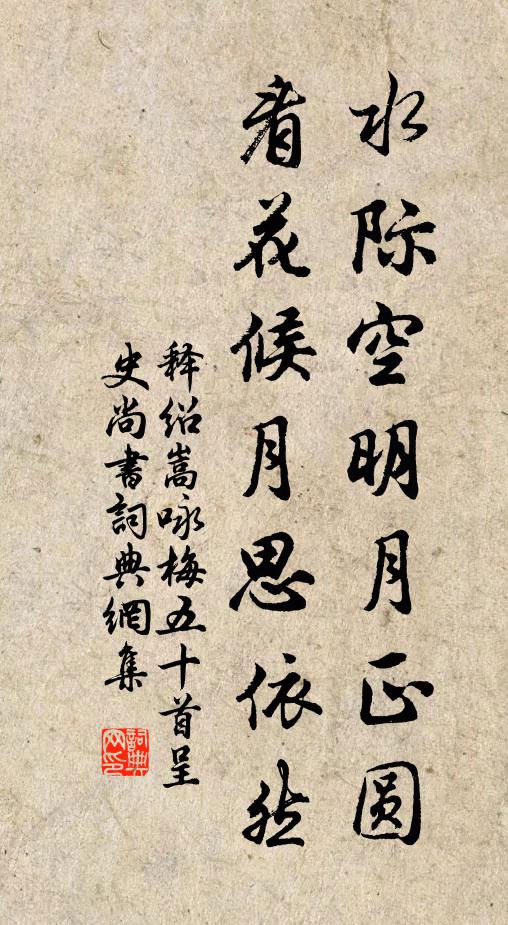 水际空明月正圆
看花候月思依然
释绍嵩咏梅五十首呈
史尚書詞典網集
詞典
网印